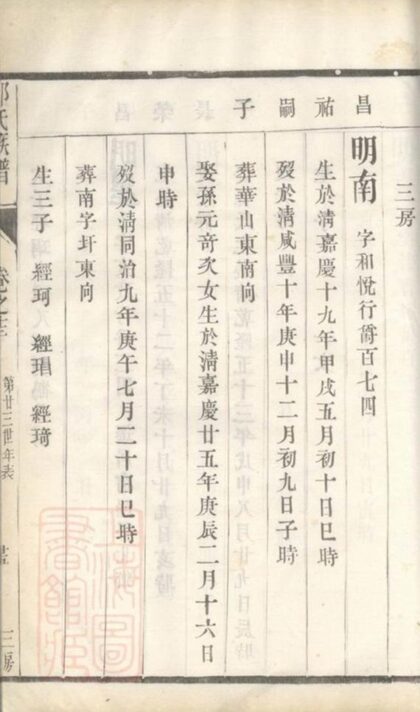 三房
昌祐嗣子
明南 字和悅行爵百七四
生於清嘉慶十九年甲戌五月初十日巳時
歿於清咸豐十年庚申十二月初九日子時
葬華山東南向
娶孫元奇次女生於清嘉慶廿五年庚辰二月十六日
申時
歿於清同治九年庚午七月二十日巳時
葬南字圩東向
生三子 經珂 經琩 經琦
氏族譜
卷之
第廿三世年表
三房